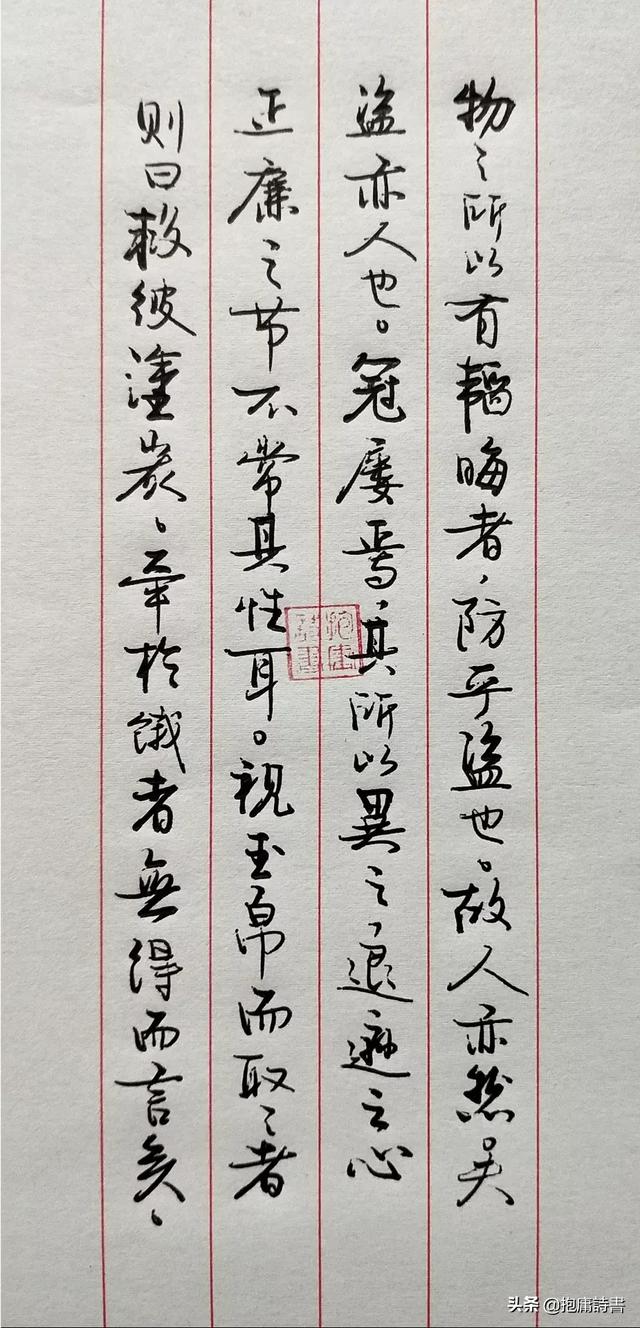 物之所以有韜晦者,防乎盜也。故人亦然。夫
盜亦人也。冠屨焉,其所以異之,退遜之心
正廉之节不常其性耳。視玉帛而取之者
则曰救彼塗炭、牵於餓者無得而言矣、
抱庸詩書
头条 @抱庸詩書